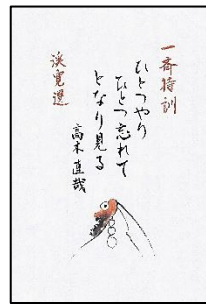 一斉特訓
ひとつやり
ひとつ忘れて
となり見る
高木直哉
渓寛選